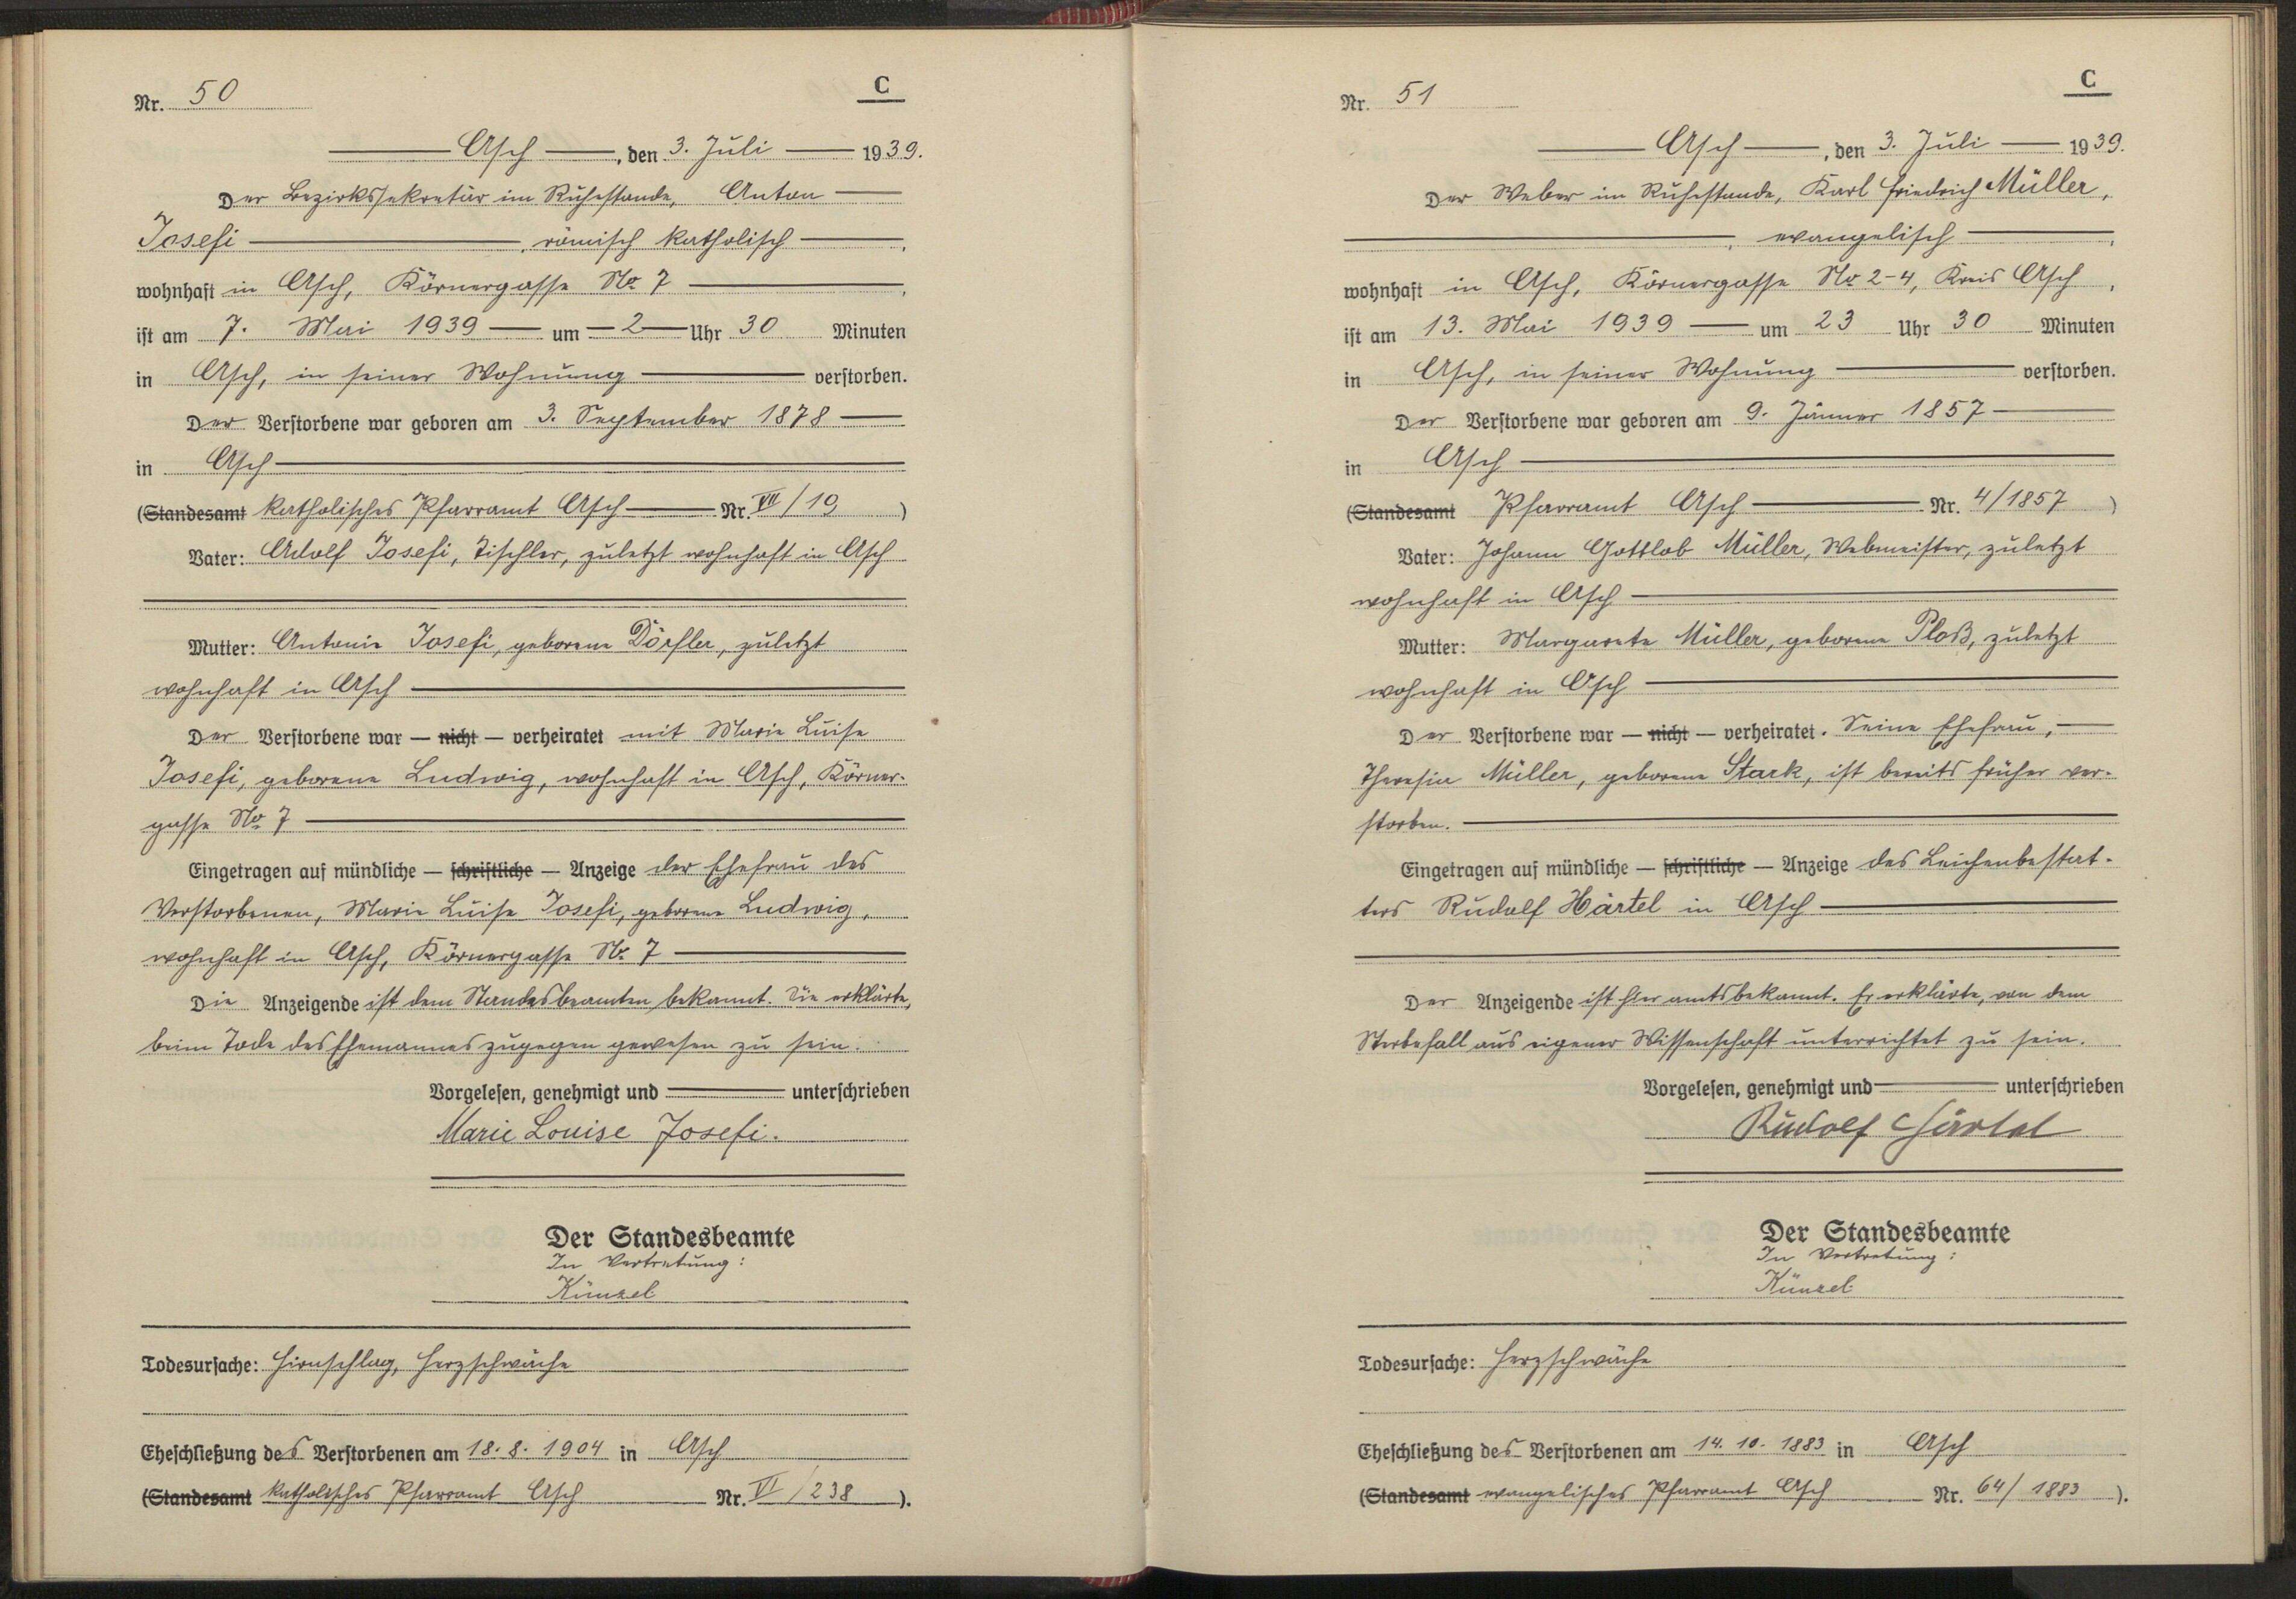 C
Nr. 50
Asch, den 3. Juli 1939.
Der Bezirkssekretär im Ruhestande, Anton
Josefi, römisch katholisch,
wohnhaft in Asch, Körnergasse No 7,
ist am 7. Mai 1939 um 2 Uhr 30 Minuten
in Asch, in seiner Wohnung verstorben.
Der Verstorbene war geboren am 3. September 1878
in Asch
(Standesamt katholisches Pfarramt Asch Nr. VII/19)
Vater: Adolf Josefi, Tischler, zuletzt wohnhaft in Asch
Mutter: Antonie Josefi, geborene Dörfler, zuletzt
wohnhaft in Asch
Der Verstorbene war — nicht — verheiratet mit Marie Luise
Josefi, geborene Ludwig, wohnhaft in Asch, Körner-
gasse No 7
Eingetragen auf mündliche — schriftliche — Anzeige der Ehefrau des
Verstorbenen, Marie Luise Josefi, geborene Ludwig,
wohnhaft in Asch, Körnergasse No 7
Die Anzeigende ist dem Standesbeamten bekannt. Sie erklärte,
beim Tode des Ehemannes zugegen gewesen zu sein.
Vorgelesen, genehmigt und unterschrieben
Marie Louise Josefi.
Der Standesbeamte
In Vertretung:
Künzel
Todesursache: Hirnschlag, Herzschwäche
Eheschließung des Verstorbenen am 18. 8. 1904 in Asch
(Standesamt katholisches Pfarramt Asch Nr. VI/238).
C
Nr. 51
Asch, den 3. Juli 1939.
Der Weber im Ruhestande, Karl Friedrich Müller,
, evangelisch,
wohnhaft in Asch, Körnergasse No 2-4, Kreis Asch,
ist am 13. Mai 1939 um 23 Uhr 30 Minuten
in Asch, in seiner Wohnung verstorben.
Der Verstorbene war geboren am 9. Jänner 1857
in Asch
(Standesamt Pfarramt Asch Nr. 4/1857)
Vater: Johann Gottlob Müller, Webmeister, zuletzt
wohnhaft in Asch
Mutter: Margarete Müller, geborene Ploß, zuletzt
wohnhaft in Asch
Der Verstorbene war — nicht — verheiratet. Seine Ehefrau,
Theresia Müller, geborene Stark, ist bereits früher ver-
storben.
Eingetragen auf mündliche — schriftliche — Anzeige des Leichenbestat-
ters Rudolf Härtel in Asch
Der Anzeigende ist hier amtsbekannt. Er erklärte, von dem
Sterbefall aus eigener Wissenschaft unterrichtet zu sein.
Vorgelesen, genehmigt und unterschrieben
Rudolf Härtel
Der Standesbeamte
In Vertretung:
Künzel
Todesursache: Herzschwäche
Eheschließung des Verstorbenen am 14. 10. 1883 in Asch
(Standesamt evangelisches Pfarramt Asch Nr. 64/1883).